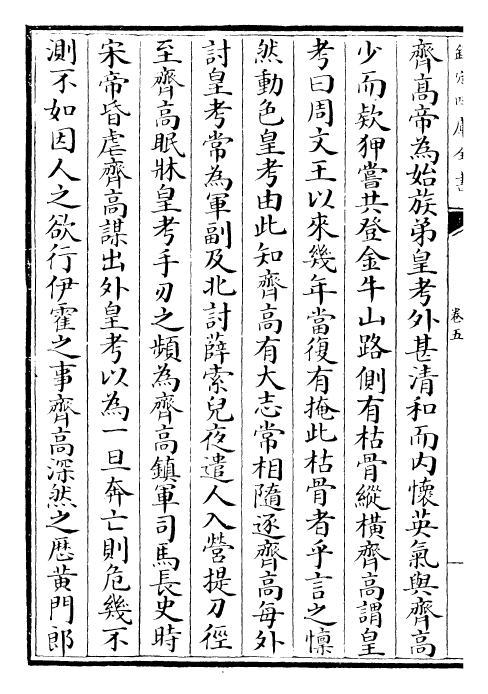 欽定四庫全書
卷五
齊髙帝為始族弟皇考外甚清和而内懐英氣與齊高
少而欵狎嘗共登金牛山路側有枯骨縱横齊高謂皇
考曰周文王以來幾年當復有掩此枯骨者乎言之懍
然動色皇考由此知齊高有大志常相隨逐齊高每外
討皇考常為軍副及北討薛索兒夜遣人入營提刀徑
至齊高眠牀皇考手刃之頻為齊高鎮軍司馬長史時
宋帝昏虐齊高謀出外皇考以為一旦奔亡則危幾不
測不如因人之欲行伊霍之事齊高深然之歴黄門郎